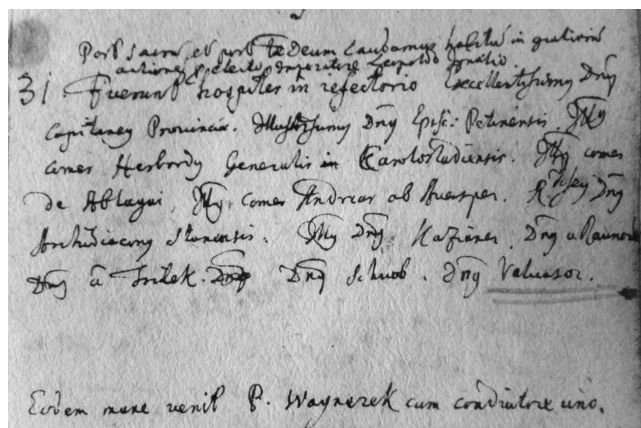 Post sacrum et post te Deum laudamus habitum in gratiarum
actionem electo Imperatore Leopoldo Ignatio
31 Fuerunt hospites in refectorio Excellentissimus Dnus
Capitaneus Provinciae. Illustrissimus Dnus Episc: Petinensis Illus
comes Herbordus Generalis Karolostadiensis. Illus comes
de Ablaqui, Illus comes Andreas ab Auersper. Dnus
Archidiaconus. Illus Dnus Kazianer, Dnus a Raunor
Dnus a Dnus Schwob. Dnus Valuasor.
Eodem mane venit P. Waynerek cum condiutore uno.